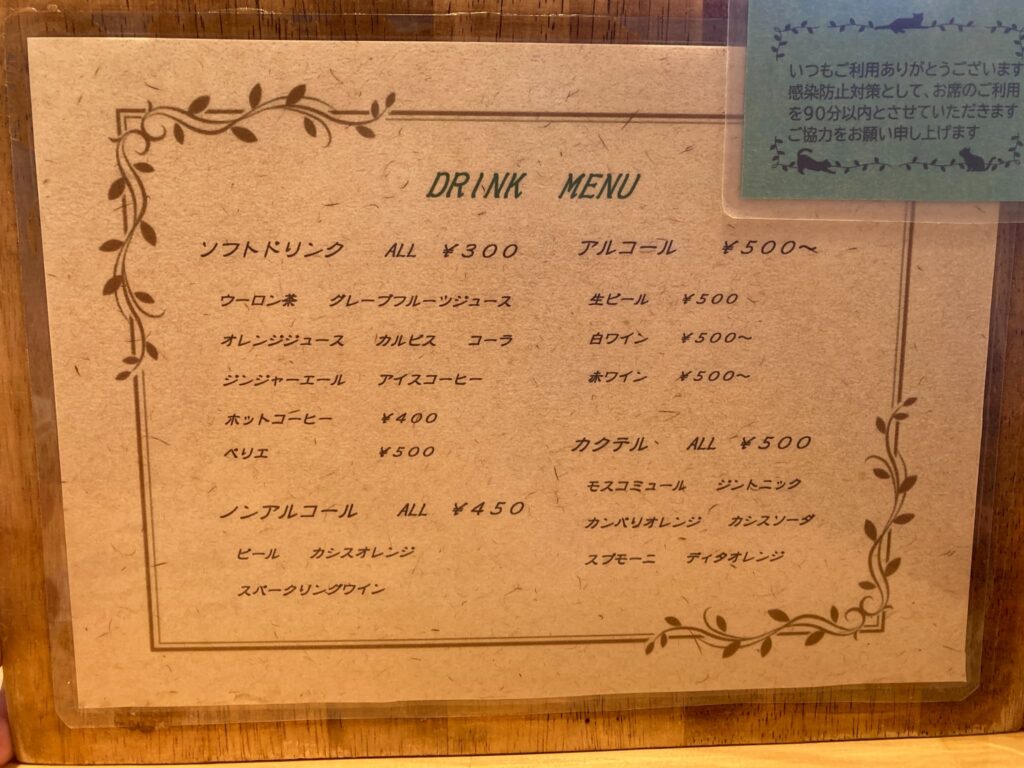 いつもご利用ありがとうございます
感染防止対策として、お席のご利用
を90分以内とさせていただきます
ご協力をお願い申し上げます
DRINK MENU
ソフトドリンク ALL ￥300
ウーロン茶 グレープフルーツジュース
オレンジジュース カルピス コーラ
ジンジャーエール アイスコーヒー
ホットコーヒー ￥400
ペリエ ￥500
ノンアルコール ALL ￥450
ビール カシスオレンジ
スパークリングワイン
アルコール ￥500～
生ビール ￥500
白ワイン ￥500～
赤ワイン ￥500～
カクテル ALL ￥500
モスコミュール ジントニック
カンパリオレンジ カシスソーダ
スプモーニ ディタオレンジ